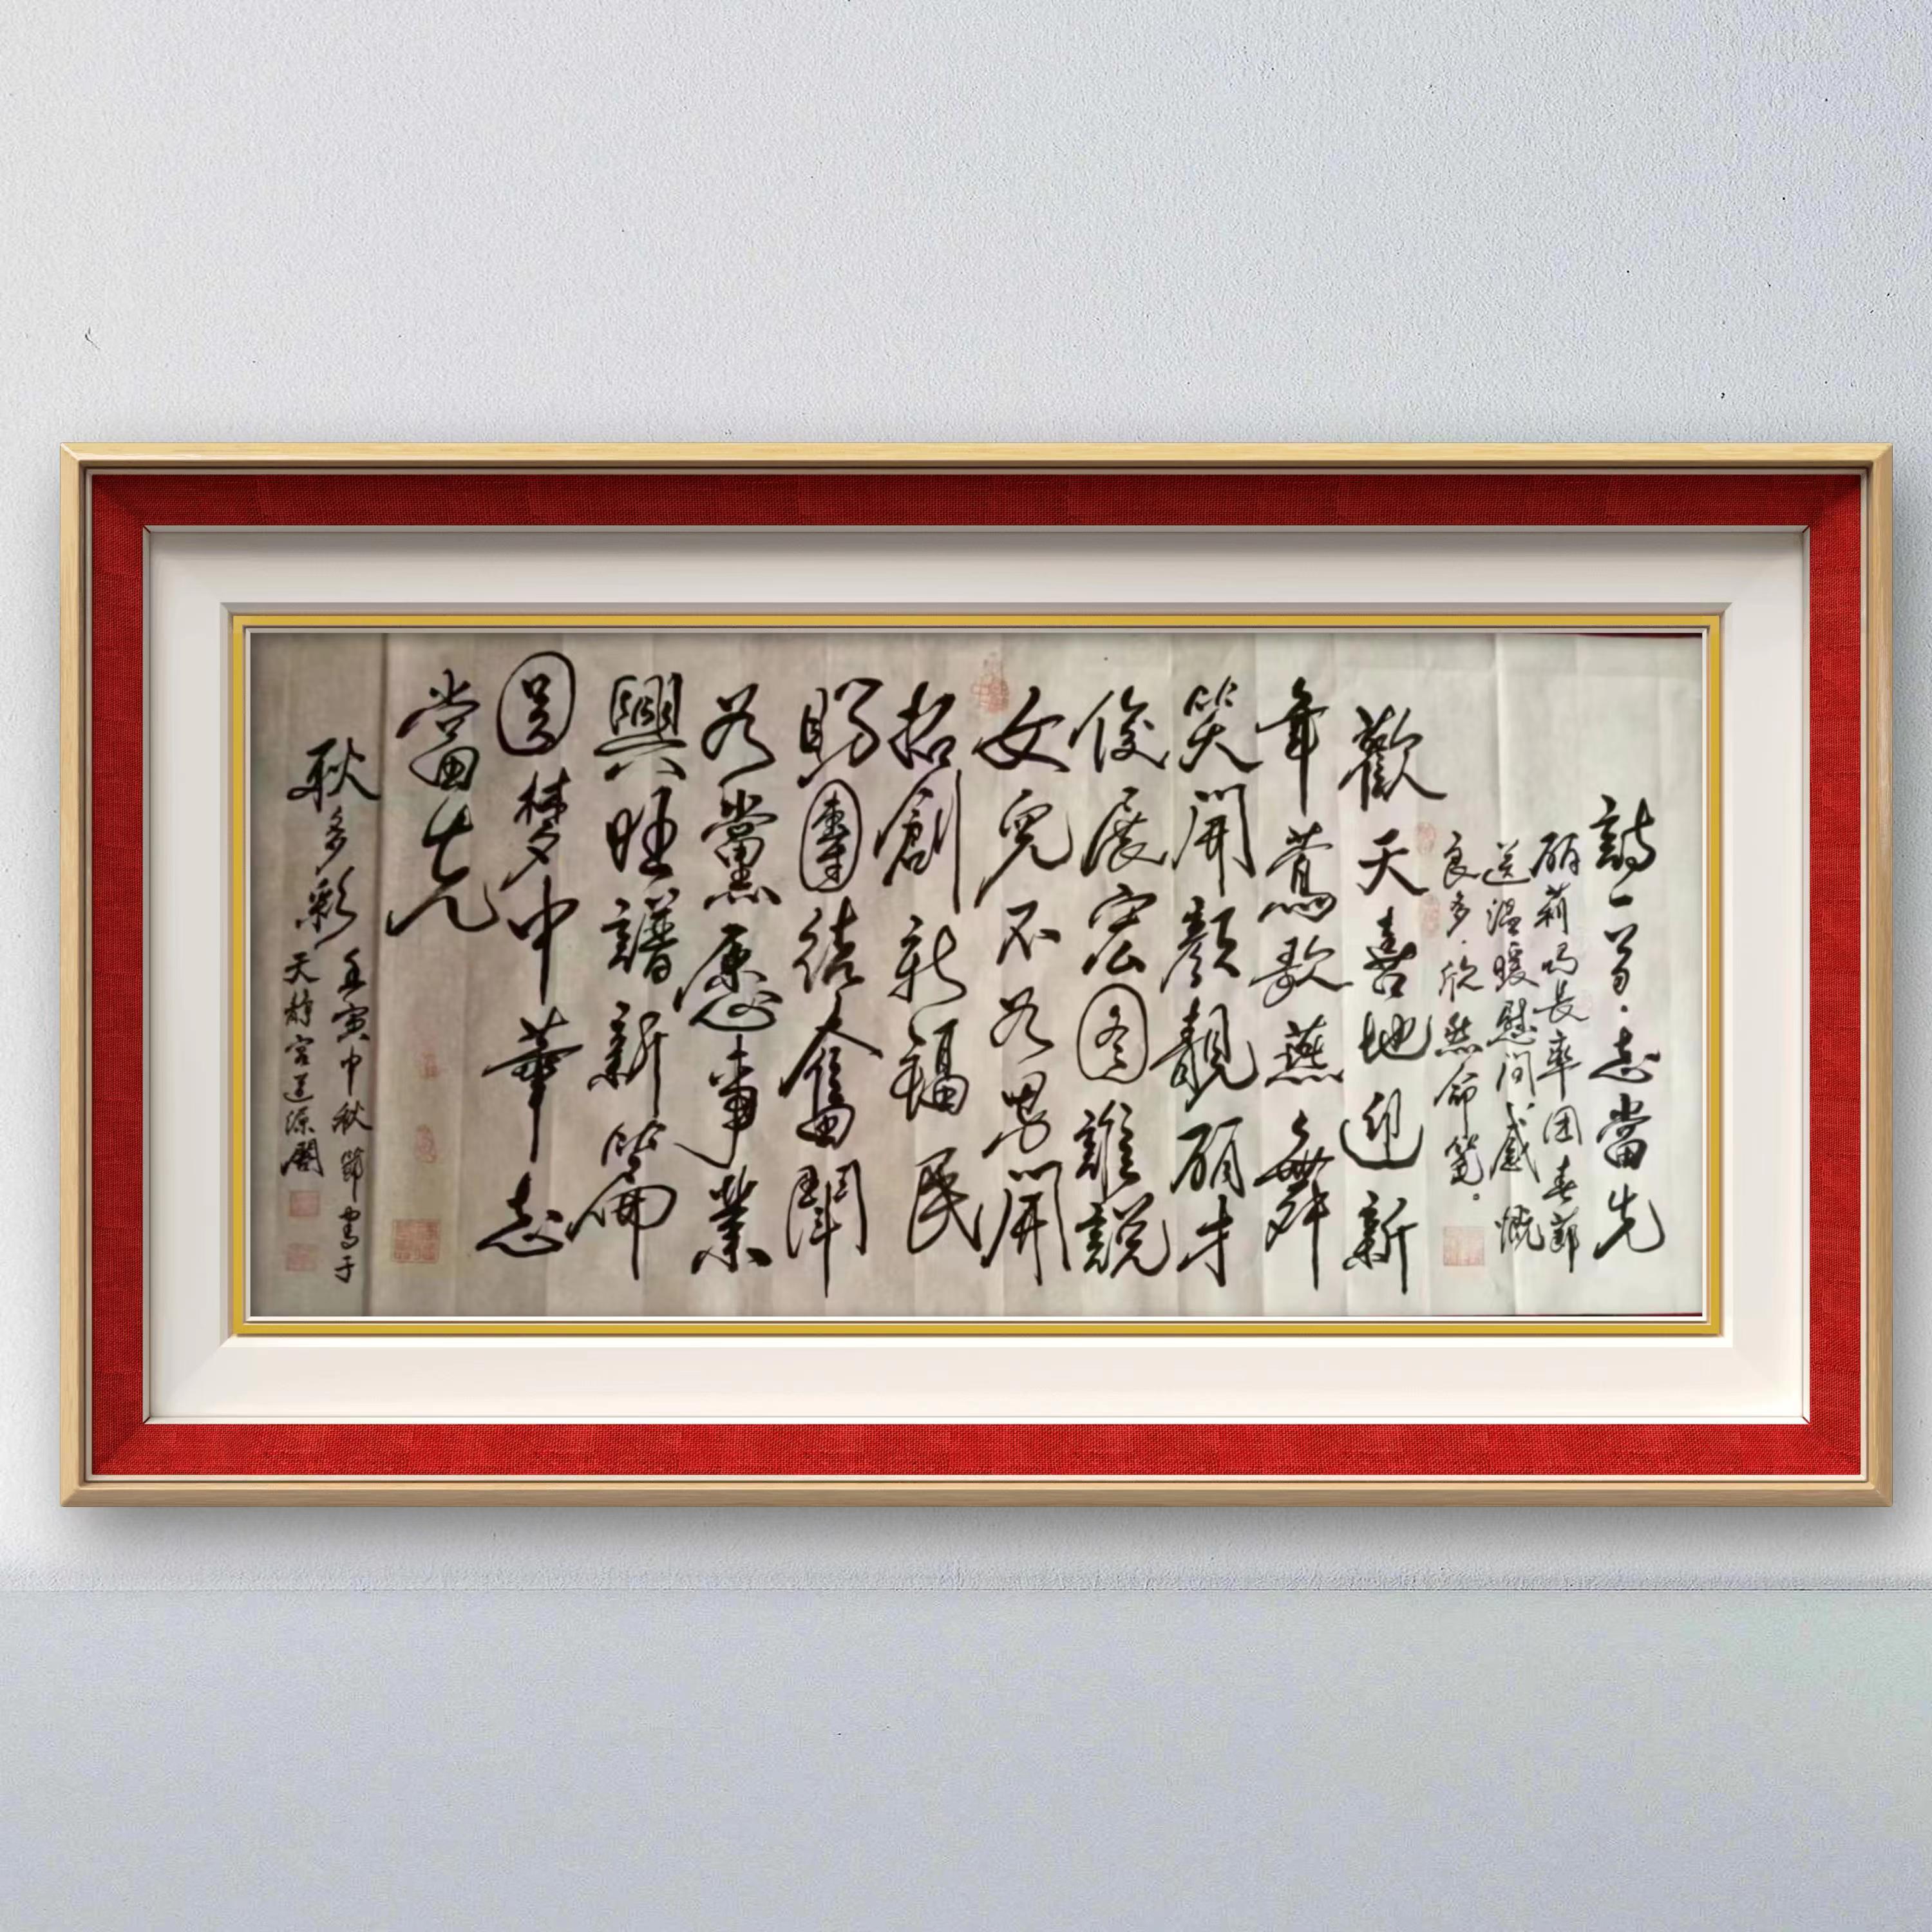 詩一首·志當先
丽莉局长率团春節
送温暖慰问感慨
良多·欣然命筆。
歡天喜地迎新
年鶯歌燕舞
笑開顏靚丽才
俊展宏图誰説
女兒不如男開
拓創新福民
眾團结奮鬪
为黨愿事業
興旺譜新篇
圆梦中華志
當先
耿多彩壬寅中秋節書于
天静宫道源閣